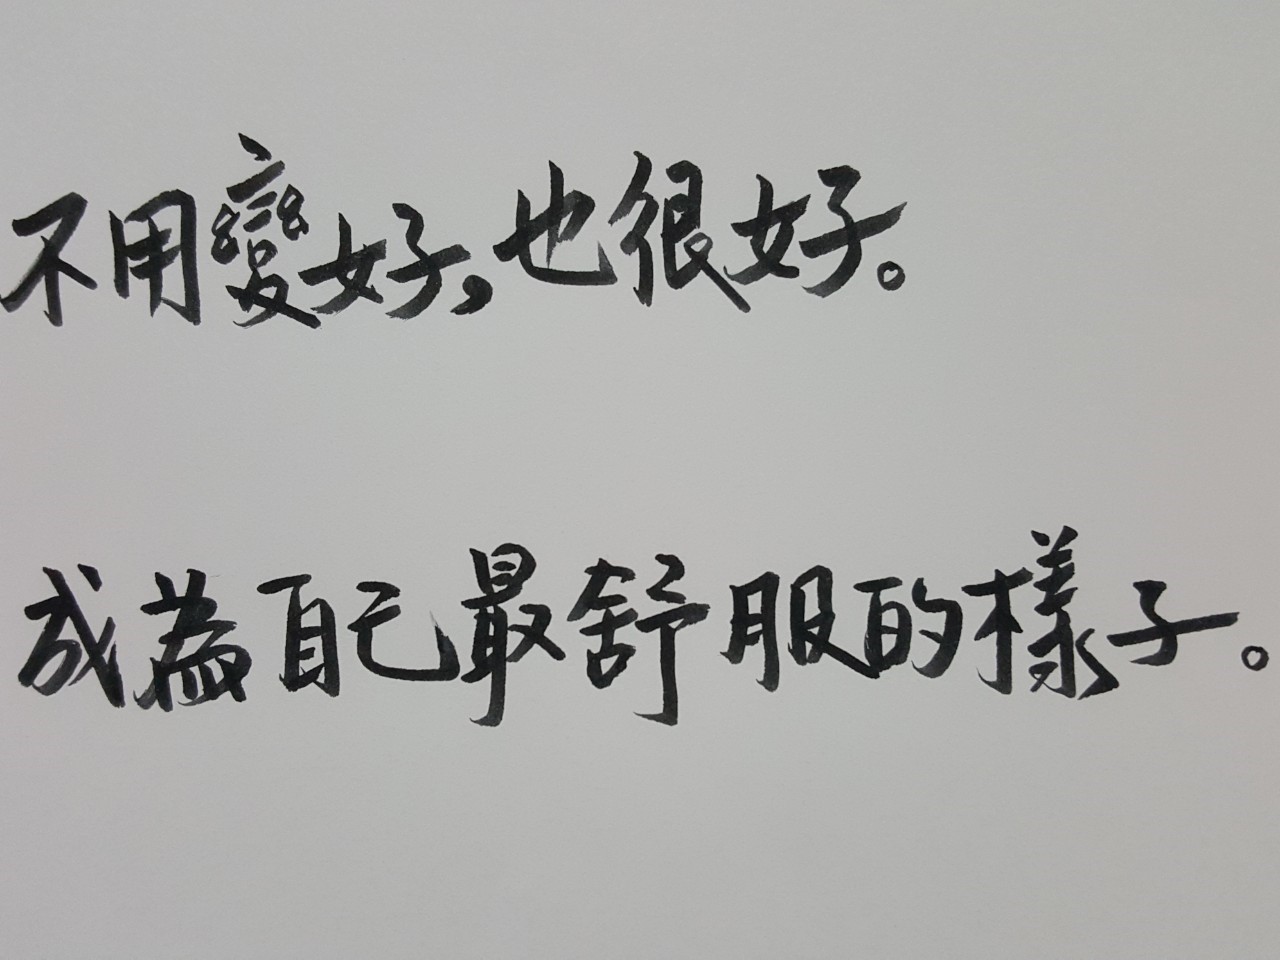 不用變好，也很好。
成為自己最舒服的樣子。